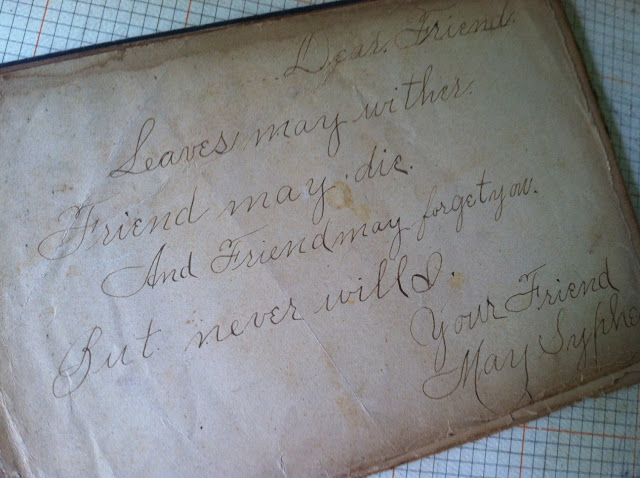 Dear Friend.
Leaves may wither.
Friend may die.
And Friend may forget you.
But never will I.
Your Friend
May Syphe